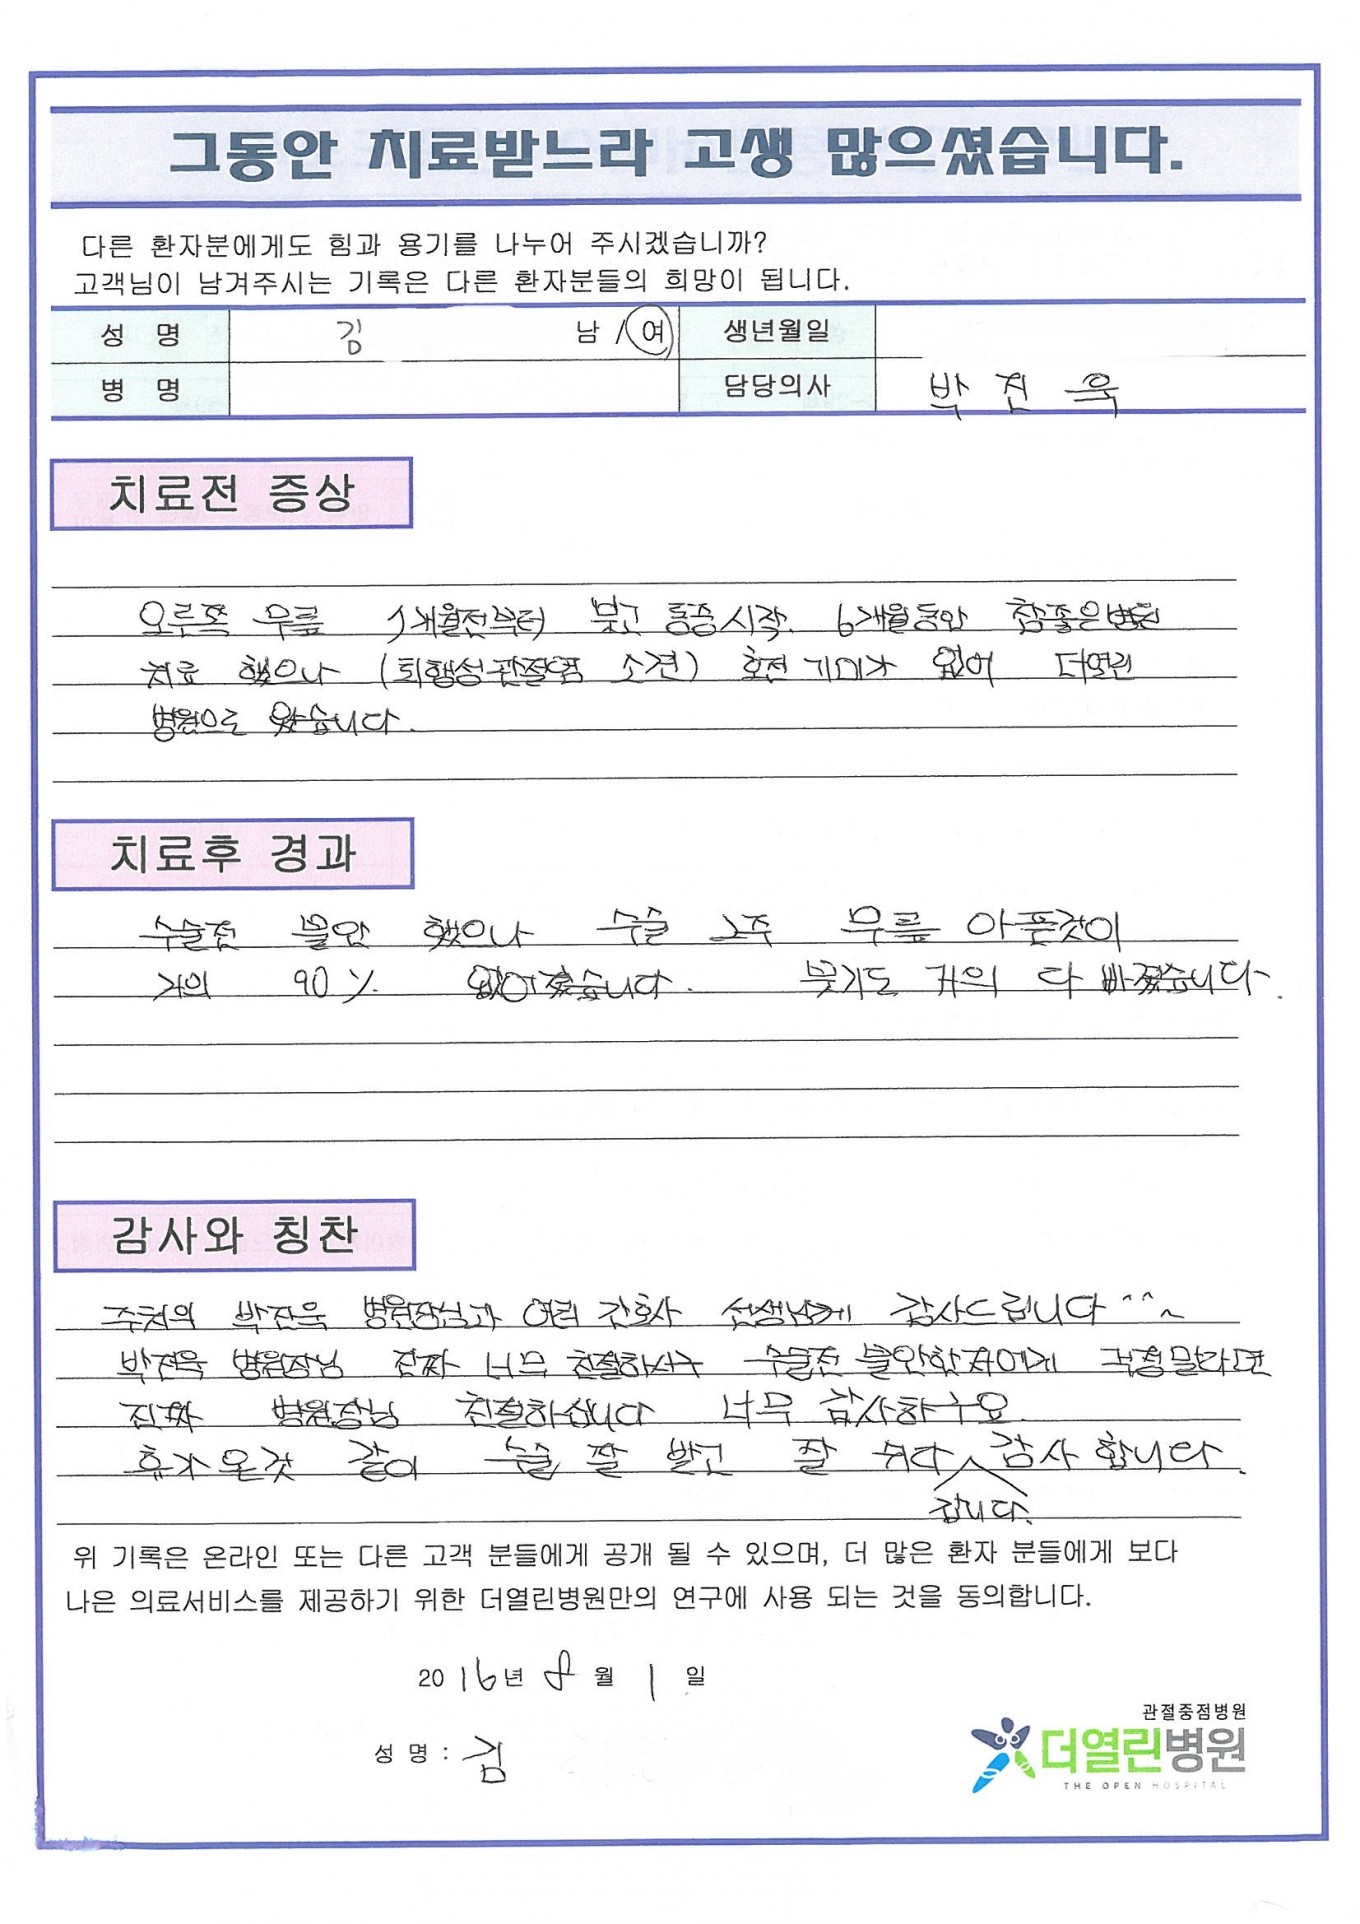 그동안 치료받느라 고생 많으셨습니다.
다른 환자분에게도 힘과 용기를 나누어 주시겠습니까?
고객님이 남겨주시는 기록은 다른 환자분들의 희망이 됩니다.
성 명 김 남 / 여 생년월일
병 명 담당의사 박 진 욱
치료전 증상
오른쪽 무릎 1개월전부터 붓고 통증시작. 6개월동안 참좋은병원
치료 했으나 (퇴행성관절염 소견) 호전 기미가 없어 더열린
병원으로 왔습니다.
치료후 경과
수술전 불안 했으나 수술 2주 무릎 아픈것이
거의 90% 없어졌습니다. 붓기도 거의 다 빠졌습니다.
감사와 칭찬
주치의 박진욱 병원장님과 여러 간호사 선생님께 감사드립니다 ^^~
박진욱 병원장님 진짜 너무 친절하시구 수술전 불안한저에게 걱정말라면
진짜 병원장님 친절하십니다 너무 감사하구요
휴가온것 같이 수술 잘 받고 잘 쉬다 감사합니다.
갑니다.
위 기록은 온라인 또는 다른 고객 분들에게 공개 될 수 있으며, 더 많은 환자 분들에게 보다
나은 의료서비스를 제공하기 위한 더열린병원만의 연구에 사용 되는 것을 동의합니다.
2016년 8월 1일
성 명 : 김
관절중점병원
더열린병원
THE OPEN HOSPITAL